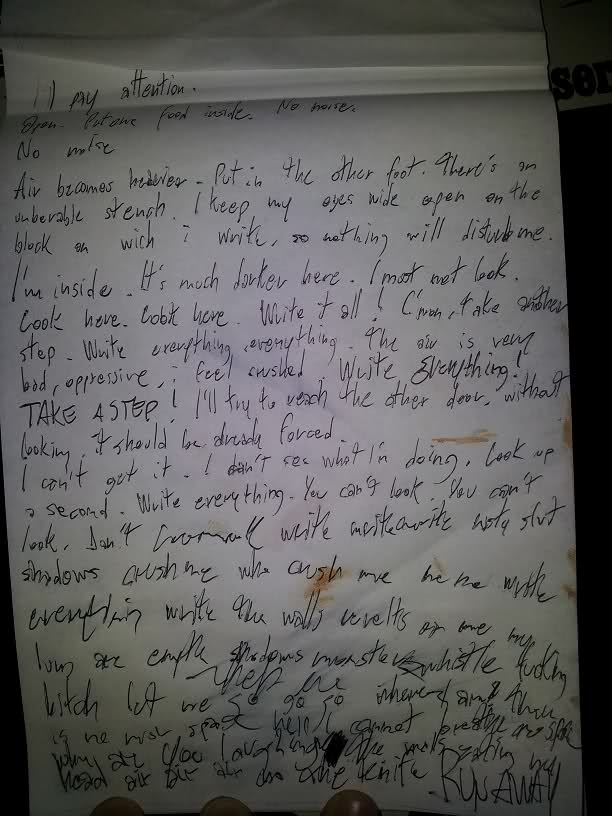 I'll pay attention.
Open. Put one foot inside. No noise.
No noise
Air becomes heavier. Put in the other foot. There's an
unberable stench. I keep my eyes wide open on the
block on wich i write, so nothing will disturb me.
I'm inside. It's much darker here. I must not look.
Look here. Look here. Write it all! C'mon, take another
step. Write everything, everything. The air is very
bad, oppressive, i feel crushed. Write Everything!
TAKE A STEP! I'll try to reach the other door, without
looking, it should be already forced.
I can't get it. I don't see what I'm doing. Look up
a second. Write everything. You can't look. You can't
look. Don't write write write
shadows crush me who crush me me me write
everything write the walls on me my
lung are empty shadows monsters whistle fucking
bitch let me go go go where
help me
is no more space help cannot breathe no space
why are you laughing the walls eating my
head air air air the knife RUN AWAY
ser